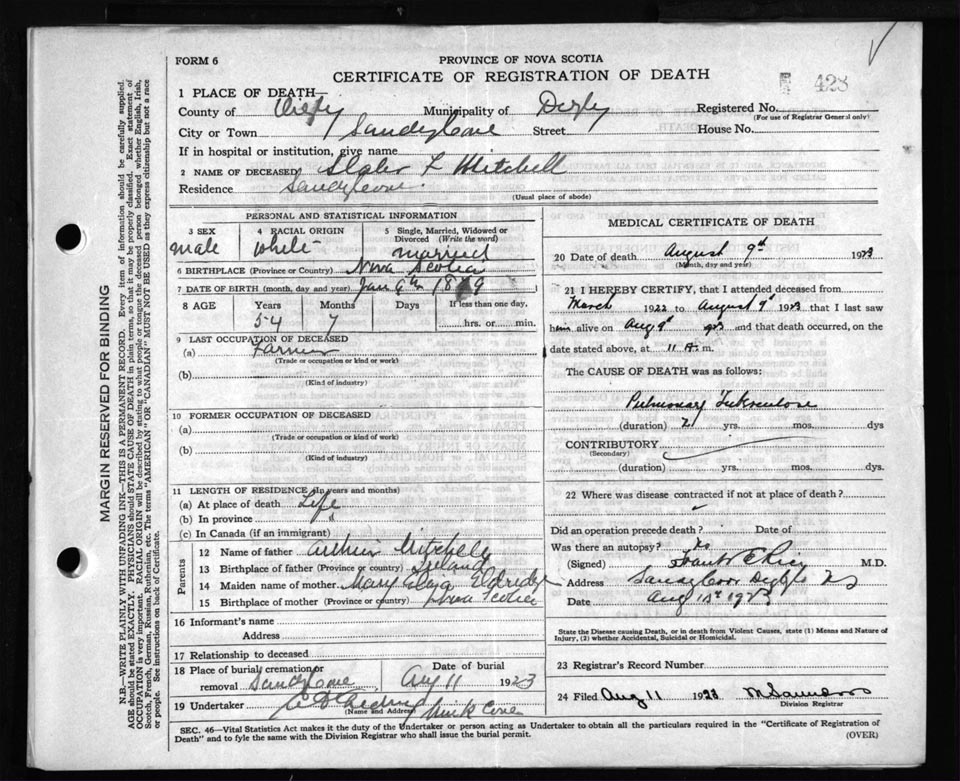 FORM 6
PROVINCE OF NOVA SCOTIA
CERTIFICATE OF REGISTRATION OF DEATH
423
1 PLACE OF DEATH—
County of Digby Municipality of Digby Registered No.
(For use of Registrar General only)
City or Town Sandy Cove Street House No.
If in hospital or institution, give name
2 NAME OF DECEASED Mitchell
Residence Sandy Cove
(Usual place of abode)
PERSONAL AND STATISTICAL INFORMATION
3 SEX 4 RACIAL ORIGIN 5 Single, Married, Widowed or Divorced (Write the word)
male white married
6 BIRTHPLACE (Province or Country) Nova Scotia
7 DATE OF BIRTH (month, day and year) Jan 18
8 AGE Years Months Days If less than one day,
54 7 hrs. or min.
9 LAST OCCUPATION OF DECEASED
(a) Farmer
(Trade or occupation or kind or work)
(b)
(Kind of industry)
10 FORMER OCCUPATION OF DECEASED
(a)
(Trade or occupation or kind of work)
(b)
(Kind of industry)
11 LENGTH OF RESIDENCE (In years and months)
(a) At place of death Life
(b) In province "
(c) In Canada (if an immigrant)
Parents
12 Name of father Arthur Mitchell
13 Birthplace of father (Province or country) Ireland
14 Maiden name of mother Mary Eldridge
15 Birthplace of mother (Province or country) Nova Scotia
16 Informant's name
Address
17 Relationship to deceased
18 Place of burial, cremation or removal Sandy Cove Date of burial Aug 11 1923
19 Undertaker Mink Cove
(Name and Address)
MEDICAL CERTIFICATE OF DEATH
20 Date of death August 9th 1923
(Month, day and year)
21 I HEREBY CERTIFY, that I attended deceased from
March 1922 to August 9th 1923 that I last saw
him alive on Aug 9th 1923 and that death occurred, on the
date stated above, at 11 A. m.
The CAUSE OF DEATH was as follows:
Pulmonary Tuberculose
(duration) 2 yrs. mos. dys
CONTRIBUTORY
(Secondary)
(duration) yrs. mos. dys.
22 Where was disease contracted if not at place of death?
Did an operation precede death? Date of
Was there an autopsy? No
(Signed) Frank E Rice M.D.
Address Sandy Cove Digby NS
Date Aug 1923
State the Disease causing Death, or in death from Violent Causes, state (1) Means and Nature of
Injury, (2) whether Accidental, Suicidal or Homicidal.
23 Registrar's Record Number
24 Filed Aug 11 1923
Division Registrar
SEC. 46—Vital Statistics Act makes it the duty of the Undertaker or person acting as Undertaker to obtain all the particulars required in the "Certificate of Registration of
Death" and to fyle the same with the Division Registrar who shall issue the burial permit.
(OVER)
MARGIN RESERVED FOR BINDING
N.B.—WRITE PLAINLY WITH UNFADING INK—THIS IS A PERMANENT RECORD. Every item of information should be carefully supplied.
AGE should be stated EXACTLY. PHYSICIANS should STATE CAUSE OF DEATH in plain terms, so that it may be properly classified. Exact statement of
OCCUPATION is very important. RACIAL ORIGIN will be described by stating to what people or tongue the deceased person belonged whether English, Irish,
Scotch, French, German, Russian, Ruthenian, etc. The terms "AMERICAN" OR "CANADIAN" MUST NOT BE USED as they express citizenship but not a race
or people. See instructions on back of Certificate.